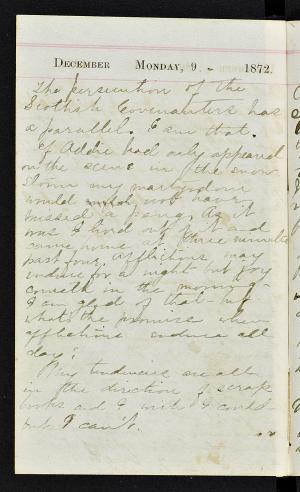 DECEMBER MONDAY, 9. 1872.
The persecution of the
Scottish Covenanters has
a parallel. I am that.
If Addie had only appeared
on the scene in the snow
storm my martyrdom
would not have
missed a pang. As it
was I lived out it and
came home at three minutes
past four. Afflictions may
endure for a night but joy
cometh in the morning -
I am glad of that - but
what's the promise when
afflictions endure all
day?
My tendencies are all
in the direction of scrap
books and I wish I could
but I can't.